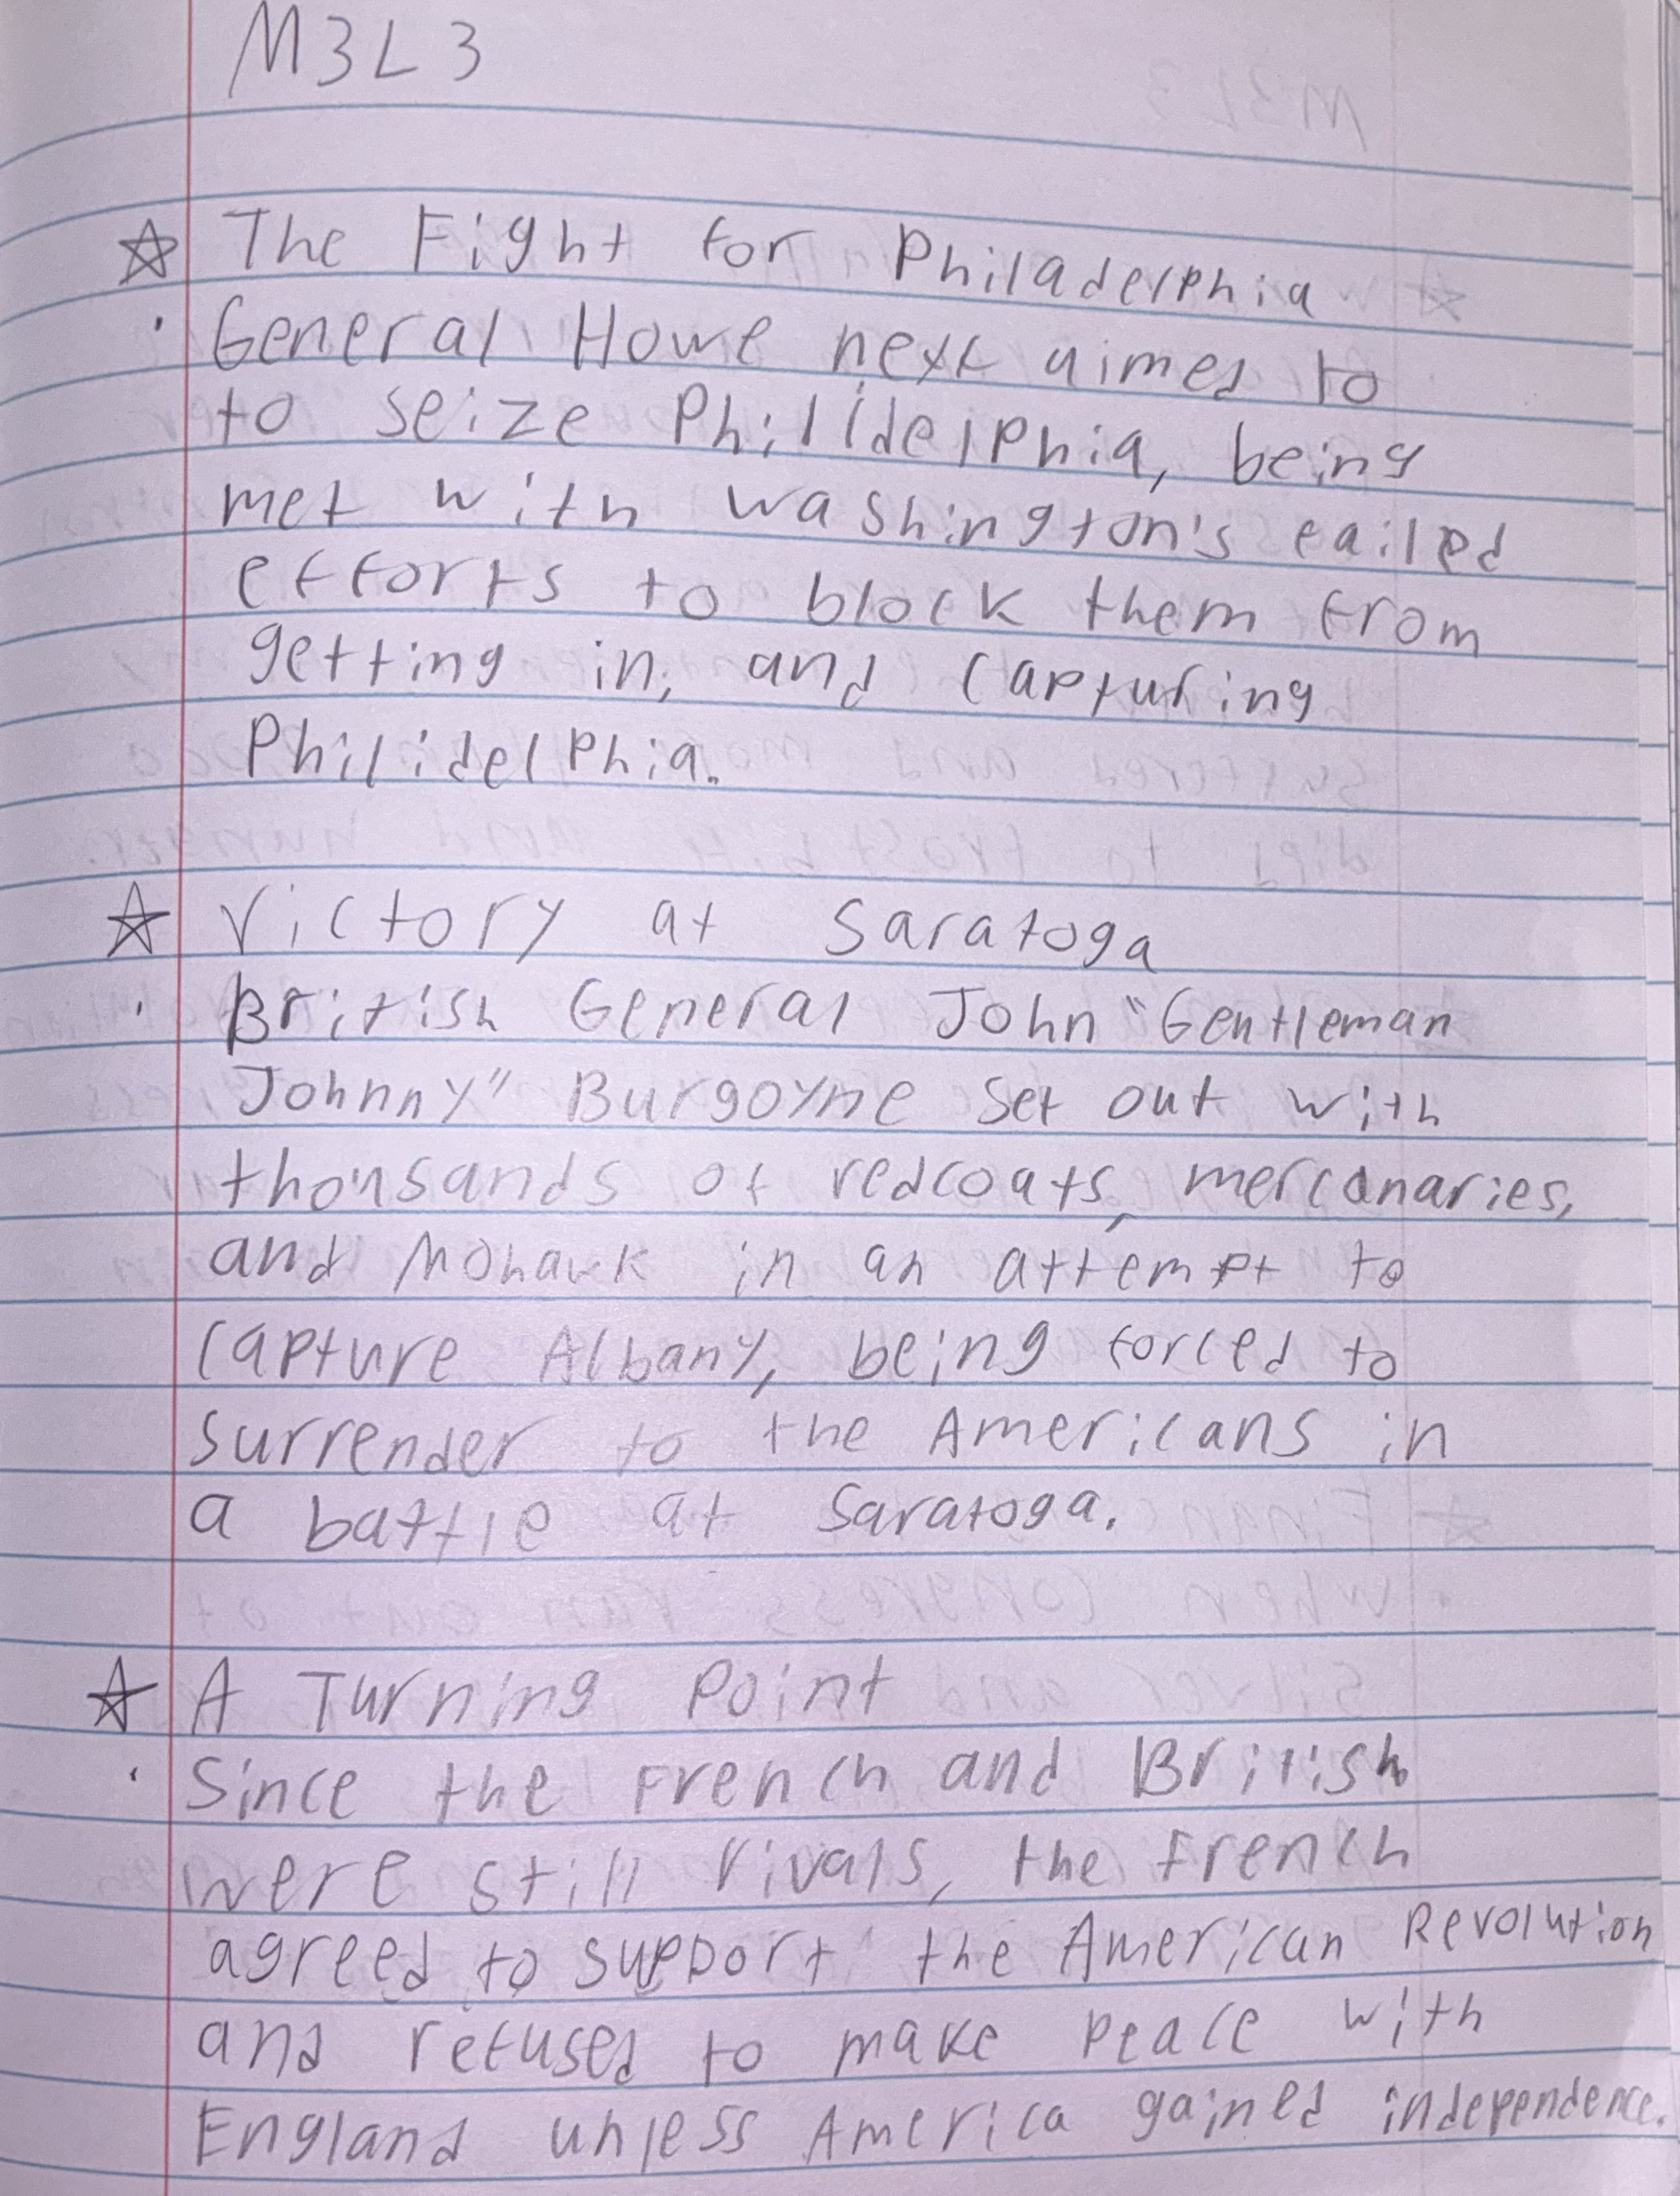 M3L3
☆ The Fight for Philadelphia
· General Howe next aimed to
to seize Philidelphia, being
met with Washington's failed
efforts to block them from
getting in, and capturing
Philidelphia.
☆ Victory at Saratoga
· British General John "Gentleman
Johnny" Burgoyne set out with
thousands of redcoats, mercanaries,
and Mohawk in an attempt to
capture Albany, being forced to
surrender to the Americans in
a battle at Saratoga.
☆ A Turning Point
· Since the French and British
were still rivals, the French
agreed to support the American Revolution
and refused to make peace with
England unless America gained independence.